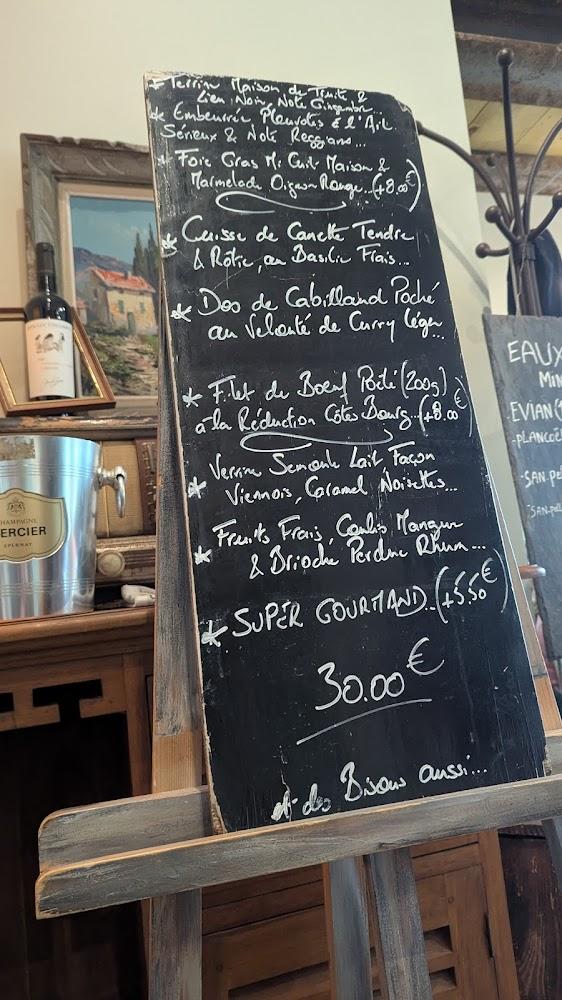 * Terrine Maison de Truite &
Lieu Noir, Note Gingembre...
* Embeurrée Pleurotes & l'Ail
Sérieux & Note Reggiano...
* Foie Gras Mi Cuit Maison &
Marmelade Oignon Rouge...(+8.00€)
* Cuisse de Canette Tendre
& Rôtie, au Basilic Frais...
* Dos de Cabillaud Poché
au Velouté de Curry léger...
* Filet de Boeuf Poêlé (200g)
à la Réduction Côtes Bourg...(+8.00€)
* Verrine Semoule Lait, Façon
Viennois, Caramel Noisettes...
* Fruits Frais, Coulis Mangue
& Brioche Perdue Rhum...
* SUPÉR GOURMAND..(+5.50€)
30.00€
et des Bisous aussi...
EAUX
MIN
EVIAN (
-PLANCOË
-SAN.pel
-SAN.pel
CHAMPAGNE
MERCIER
EPERNAY